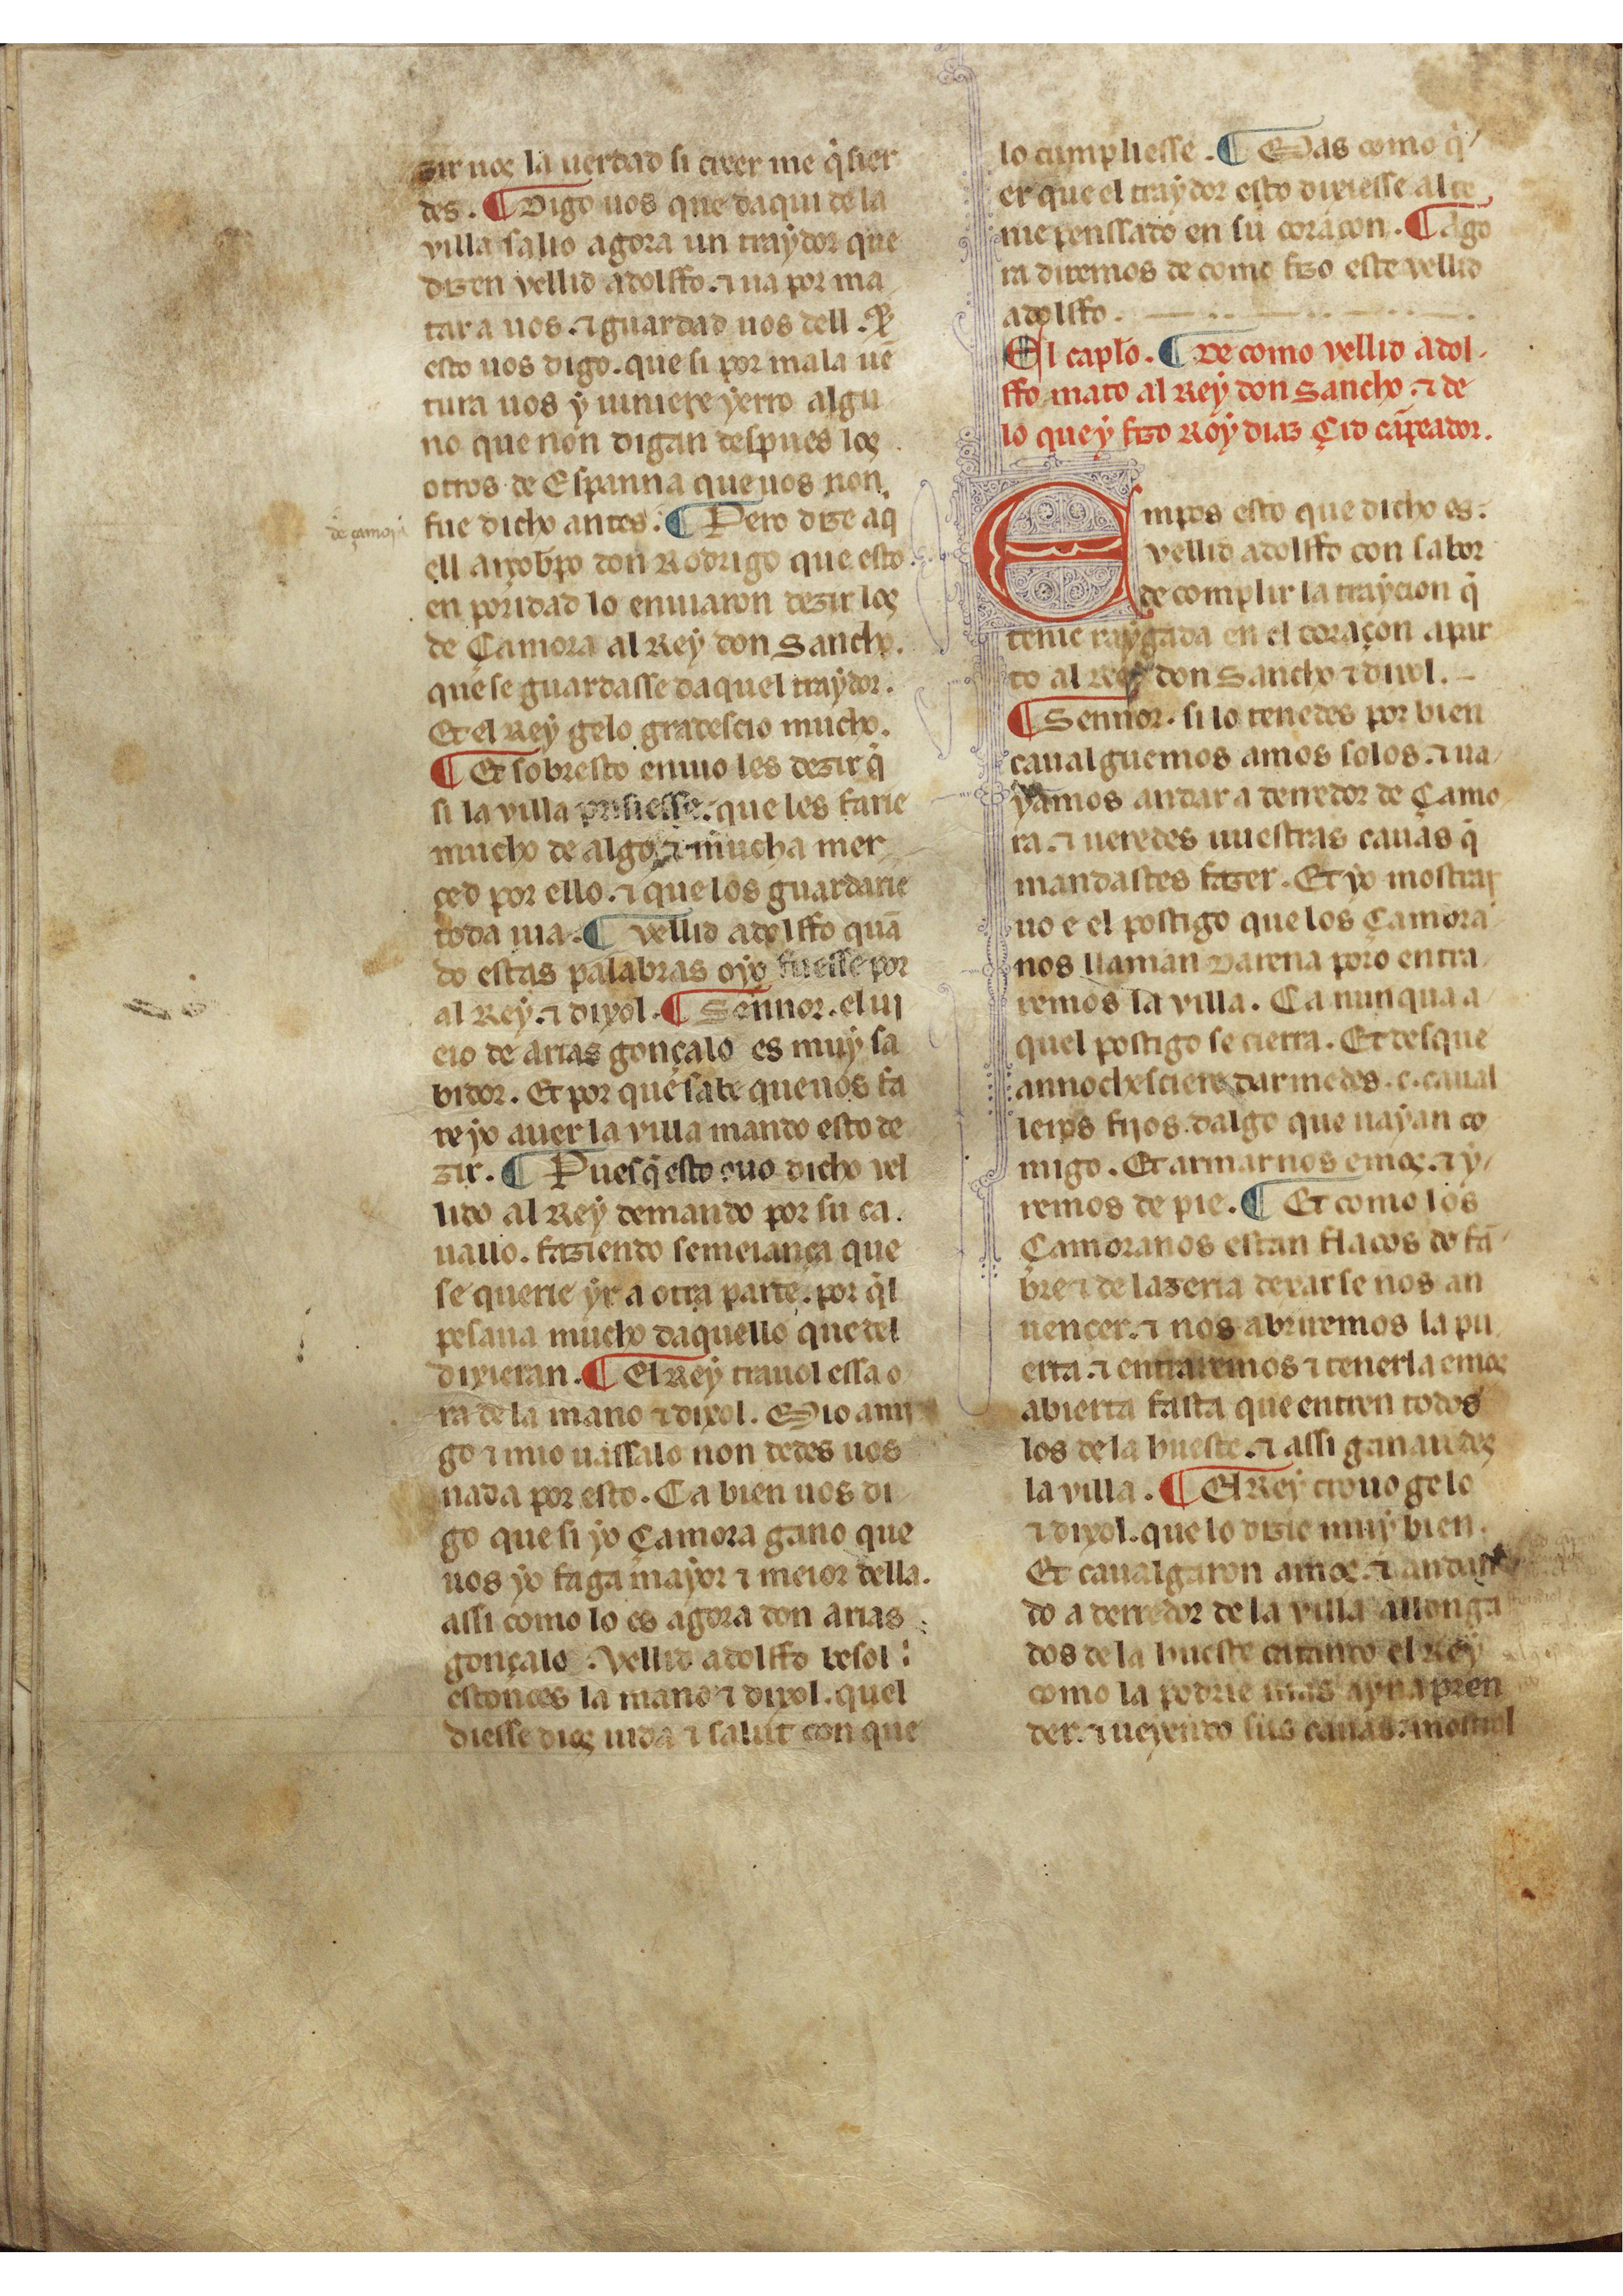 zir uos la uerdad si creer me q̃sier
des. ¶ Digo uos que daqui de la
villa salio agora un traydor que
dizen vellid adolffo. ⁊ ua por ma
tar a uos. ⁊ guardad uos dell. ⁊
esto uos digo. que si por mala uē
tura uos ẏ uiniere ẏerro algu
no que non digan despues los
otros de Espanna que uos non
fue dicho antes. ¶ Pero dize aq
de çamora
ell arçobp̃o don Rodrigo que esto
en poridad lo enuiaron dezir los
de Çamora al Reẏ don Sancho.
que se guardasse daquel traẏdor.
Et el Reẏ gelo gradescio mucho.
¶ Et sobresto enuio les dezir q̃
si la villa prisiesse. que les farie
mucho de algo. ⁊ mucha mer
çed por ello. ⁊ que los guardarie
toda uia. ¶ Vellid adolffo quā
do estas palabras oyo fuesse por
al Reẏ. ⁊ dixol. ¶ Sennor. el ui
eio de arias gonçalo es muẏ sa
bidor. Et por que sabe que uos fa
re ẏo auer la villa mando esto de
zir. ¶ Pues q̃ esto ouo dicho vel
lido al Reẏ demando por su ca
uallo. faziendo semeiança que
se querie ẏr a otra parte. por q̃l
pesaua mucho daquello que del
dixieran. ¶ El Reẏ trauol essa o
ra de la mano ⁊ dixol. Mio ami
go ⁊ mio uassalo non dedes uos
nada por esto. Ca bien uos di
go que si ẏo Çamora gano que
uos ẏo faga maẏor ⁊ meior della.
assi como lo es agora don arias
gonçalo. Vellid adolffo besol
estonces la mano ⁊ dixol. quel
diesse dios uida ⁊ salut con que
lo cumpliesse. ¶ Mas como q̃
er que el traẏdor esto dixiesse al te
nie penssado en su coraçon. ¶ Ago
ra diremos de como fizo este vellid
adolffo.
El caplo. ¶ De como vellid adol
ffo mato al Reẏ don Sancho. ⁊ de
lo que ẏ fizo Roẏ diaz Çid cāpeador.
Empos esto que dicho es.
vellid adolffo con sabor
de complir la traẏcion q̃
tenie raẏgada en el coraçon apar
to al Reẏ don Sancho ⁊ dixol.
¶ Sennor. si lo tenedes por bien
caualguemos amos solos. ⁊ ua
ẏamos andar a derredor de Çamo
ra. ⁊ ueredes uuestras cauas q̃
mandastes fazer. Et ẏo mostrar
uo e el postigo que los Çamora
nos llaman Darena poro entra
remos la villa. Ca nunqua a
quel postigo se cierra. Et desque
annochesciere darmedes .c. caual
leros fijos dalgo que uaẏan co
migo. Et armar nos emos. ⁊ ẏ
remos de pie. ¶ Et como los
Çamoranos estan flacos de fā
bre ⁊ de lazeria dexar se nos an
uencer. ⁊ nos abriremos la pu
erta. ⁊ entraremos ⁊ tenerla emos
abierta fasta que entren todos
los de la hueste. ⁊ assi ganaredes
la villa. ¶ El Reẏ crouo gelo
⁊ dixol. que lo dizie muẏ bien.
Et caualgaron amos. ⁊ andan
do a derredor de la villa allonga
dos de la hueste catando el Reẏ
como la podrie mas aẏna pren
der. ⁊ ueẏendo sus cauas. mostrol